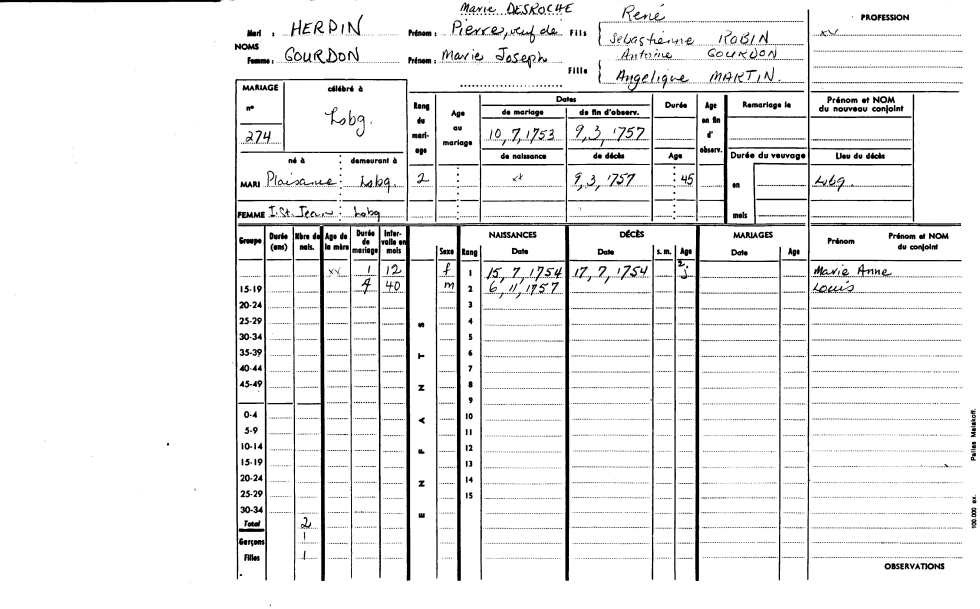 Marie DESROCHE René PROFESSION
Mari : HERDIN Prénom : Pierre, veuf de Fils Sebastienne ROBIN xx
NOMS Antoine GOURDON
Femme : GOURDON Prénom : Marie Joseph Fille Angelique MARTIN.
MARIAGE célébré à Rang du mariage Age au mariage Dates Durée Age en fin d'observ. Remariage le Prénom et NOM du nouveau conjoint
n° Lsbg. de mariage de fin d'observ.
274 10, 7, 1753 9, 3, '757
né à demeurant à de naissance de décès Age Durée du veuvage Lieu du décès
MARI Plaisance Lsbg. 2 xx 9, 3, '757 45 en Lsbg.
FEMME I. St. Jean Lsbg mois
Groupe Durée (ans) Nbre de nais. Age de la mère Durée de mariage Intervalle en mois ENFANTS Sexe Rang NAISSANCES Date DÉCÈS Date s. m. Age MARIAGES Date Age Prénom Prénom et NOM du conjoint
xx 1 12 f 1 15, 7, 1754 17, 7, 1754 2 j Marie Anne
15-19 4 40 m 2 6, 11, 1757 Louis
20-24 3
25-29 4
30-34 5
35-39 6
40-44 7
45-49 8
9
0-4 10
5-9 11
10-14 12
15-19 13
20-24 14
25-29 15
30-34
Total 2
Garçons 1
Filles 1
OBSERVATIONS
100.000 ex. Pallas Malakoff.